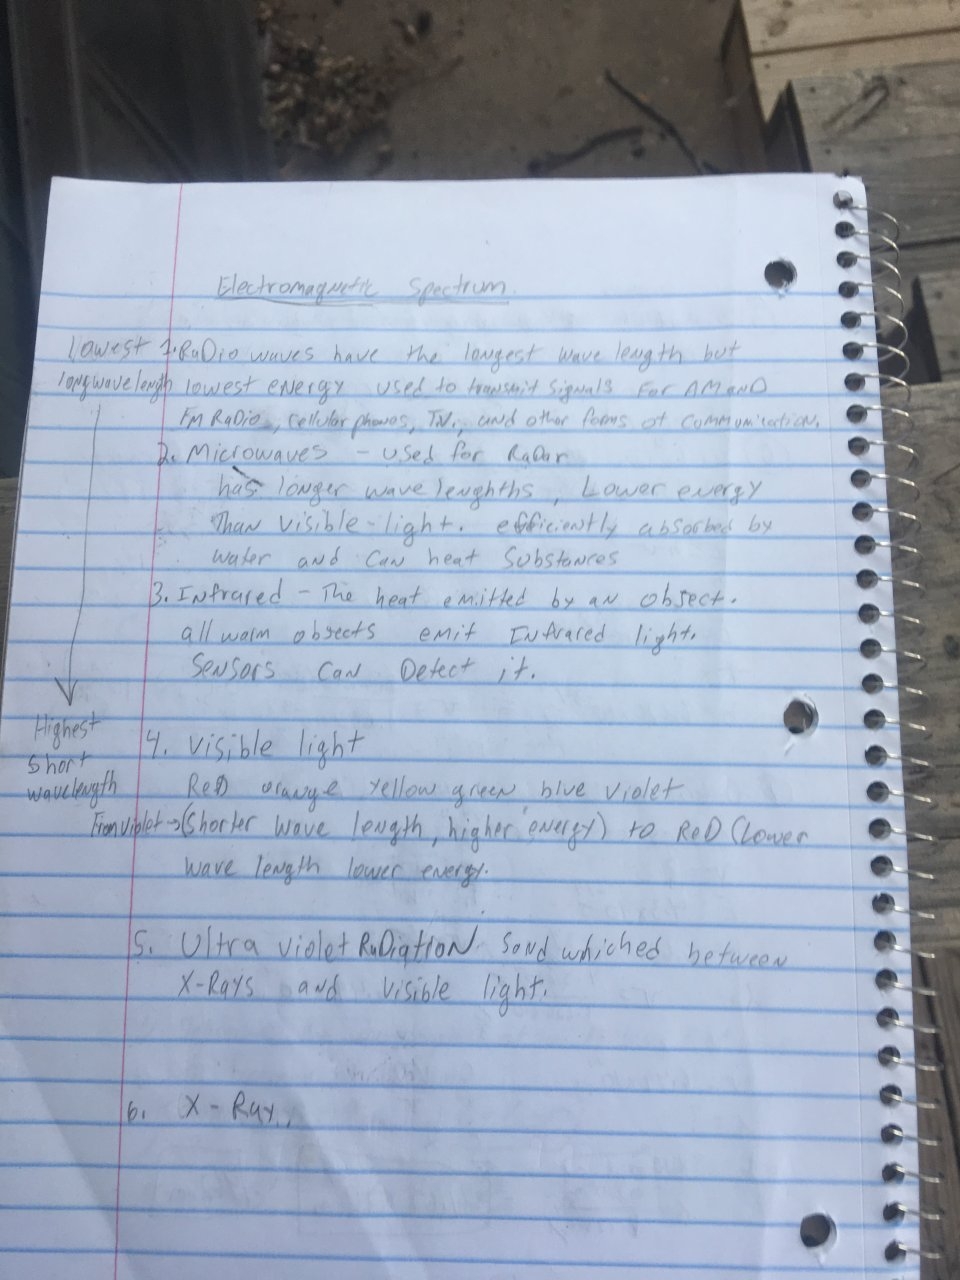 Electromagnetic Spectrum
Lowest 1. RaDio waves have the longest wave length but
long wave length lowest energy used to transmit signals For AM anD
FM RaDio, cellular phones, T.V., and other forms of communication.
2. Microwaves - used for RaDar
has longer wave lenghths, Lower energy
Than visible-light. efficiently absorbed by
water and can heat Substances
3. Infrared - The heat emitted by an object.
all warm objects emit Infrared light.
Sensors can Detect it.
Highest
Short
wavelength
4. Visible light
ReD orange yellow green blue violet
From violet → (Shorter wave length, higher energy) to ReD (Lower
wave length lower energy.
5. Ultra violet RaDiation. Sand whiched between
X-Rays and visible light.
6. X-Ray..